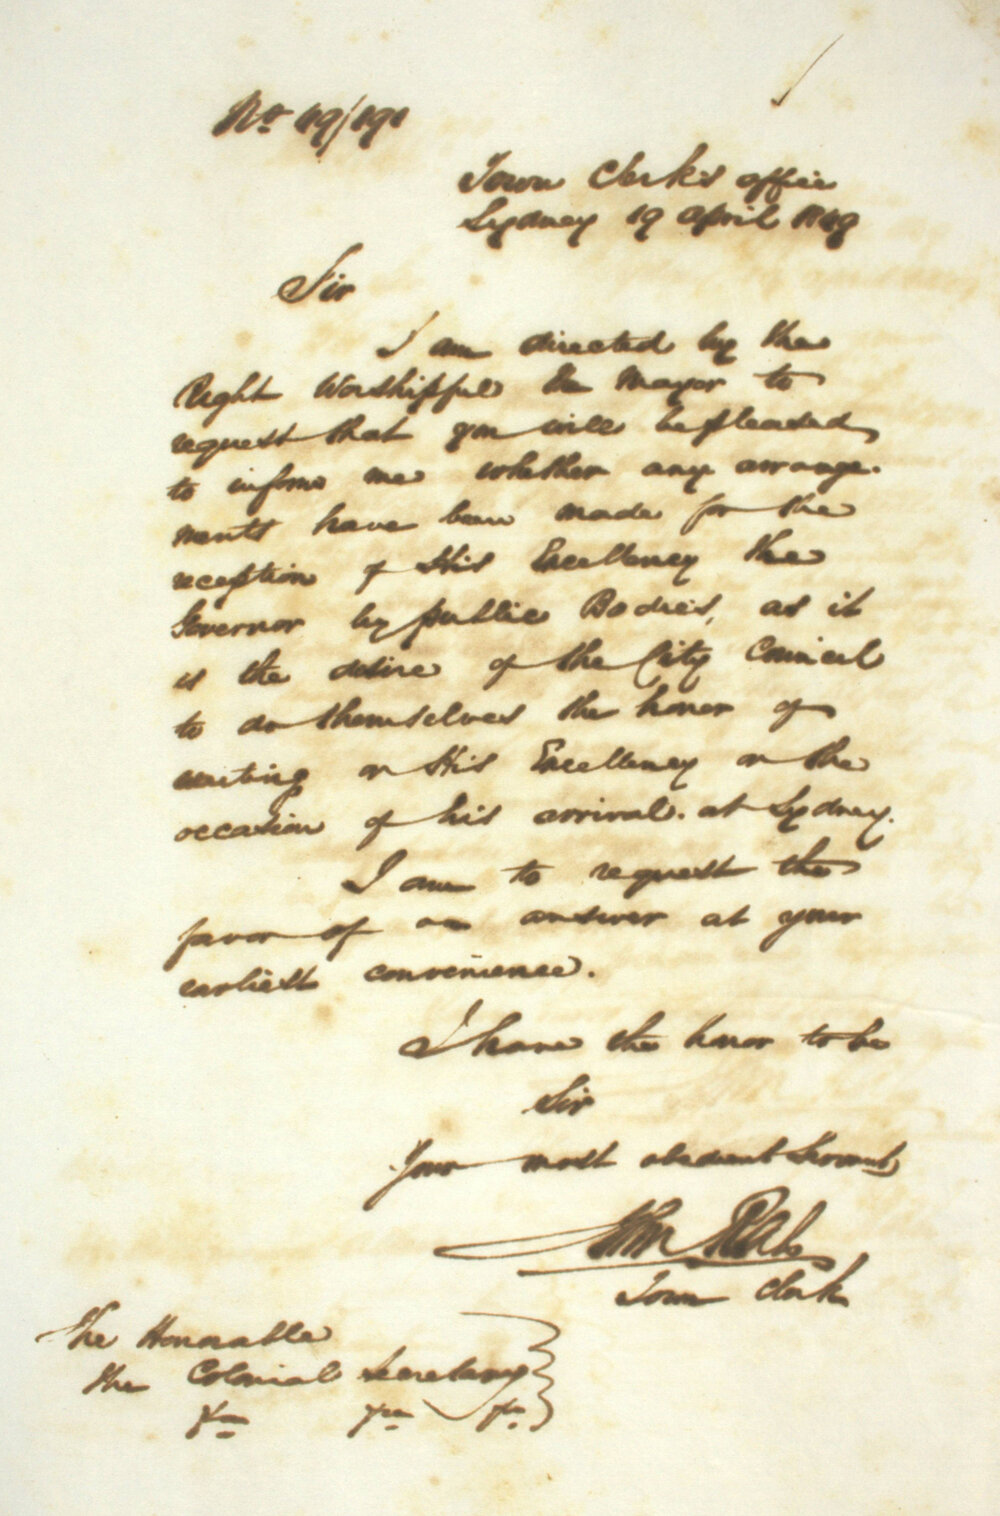 No 49/191
Town Clerk's office
Sydney 19 April 1849
Sir
I am directed by the
Right Worshipful the Mayor to
request that you will be pleased
to inform me whether any arrange-
ments have been made for the
reception of His Excellency the
Governor by public Bodies, as it
is the desire of the City Council
to do themselves the honor of
waiting on His Excellency on the
occasion of his arrival at Sydney.
I am to request the
favor of an answer at your
earliest convenience.
I have the honor to be
Sir
Your most obedient Servant
John
Town Clerk
The Honorable
the Colonial Secretary
&c &c &c